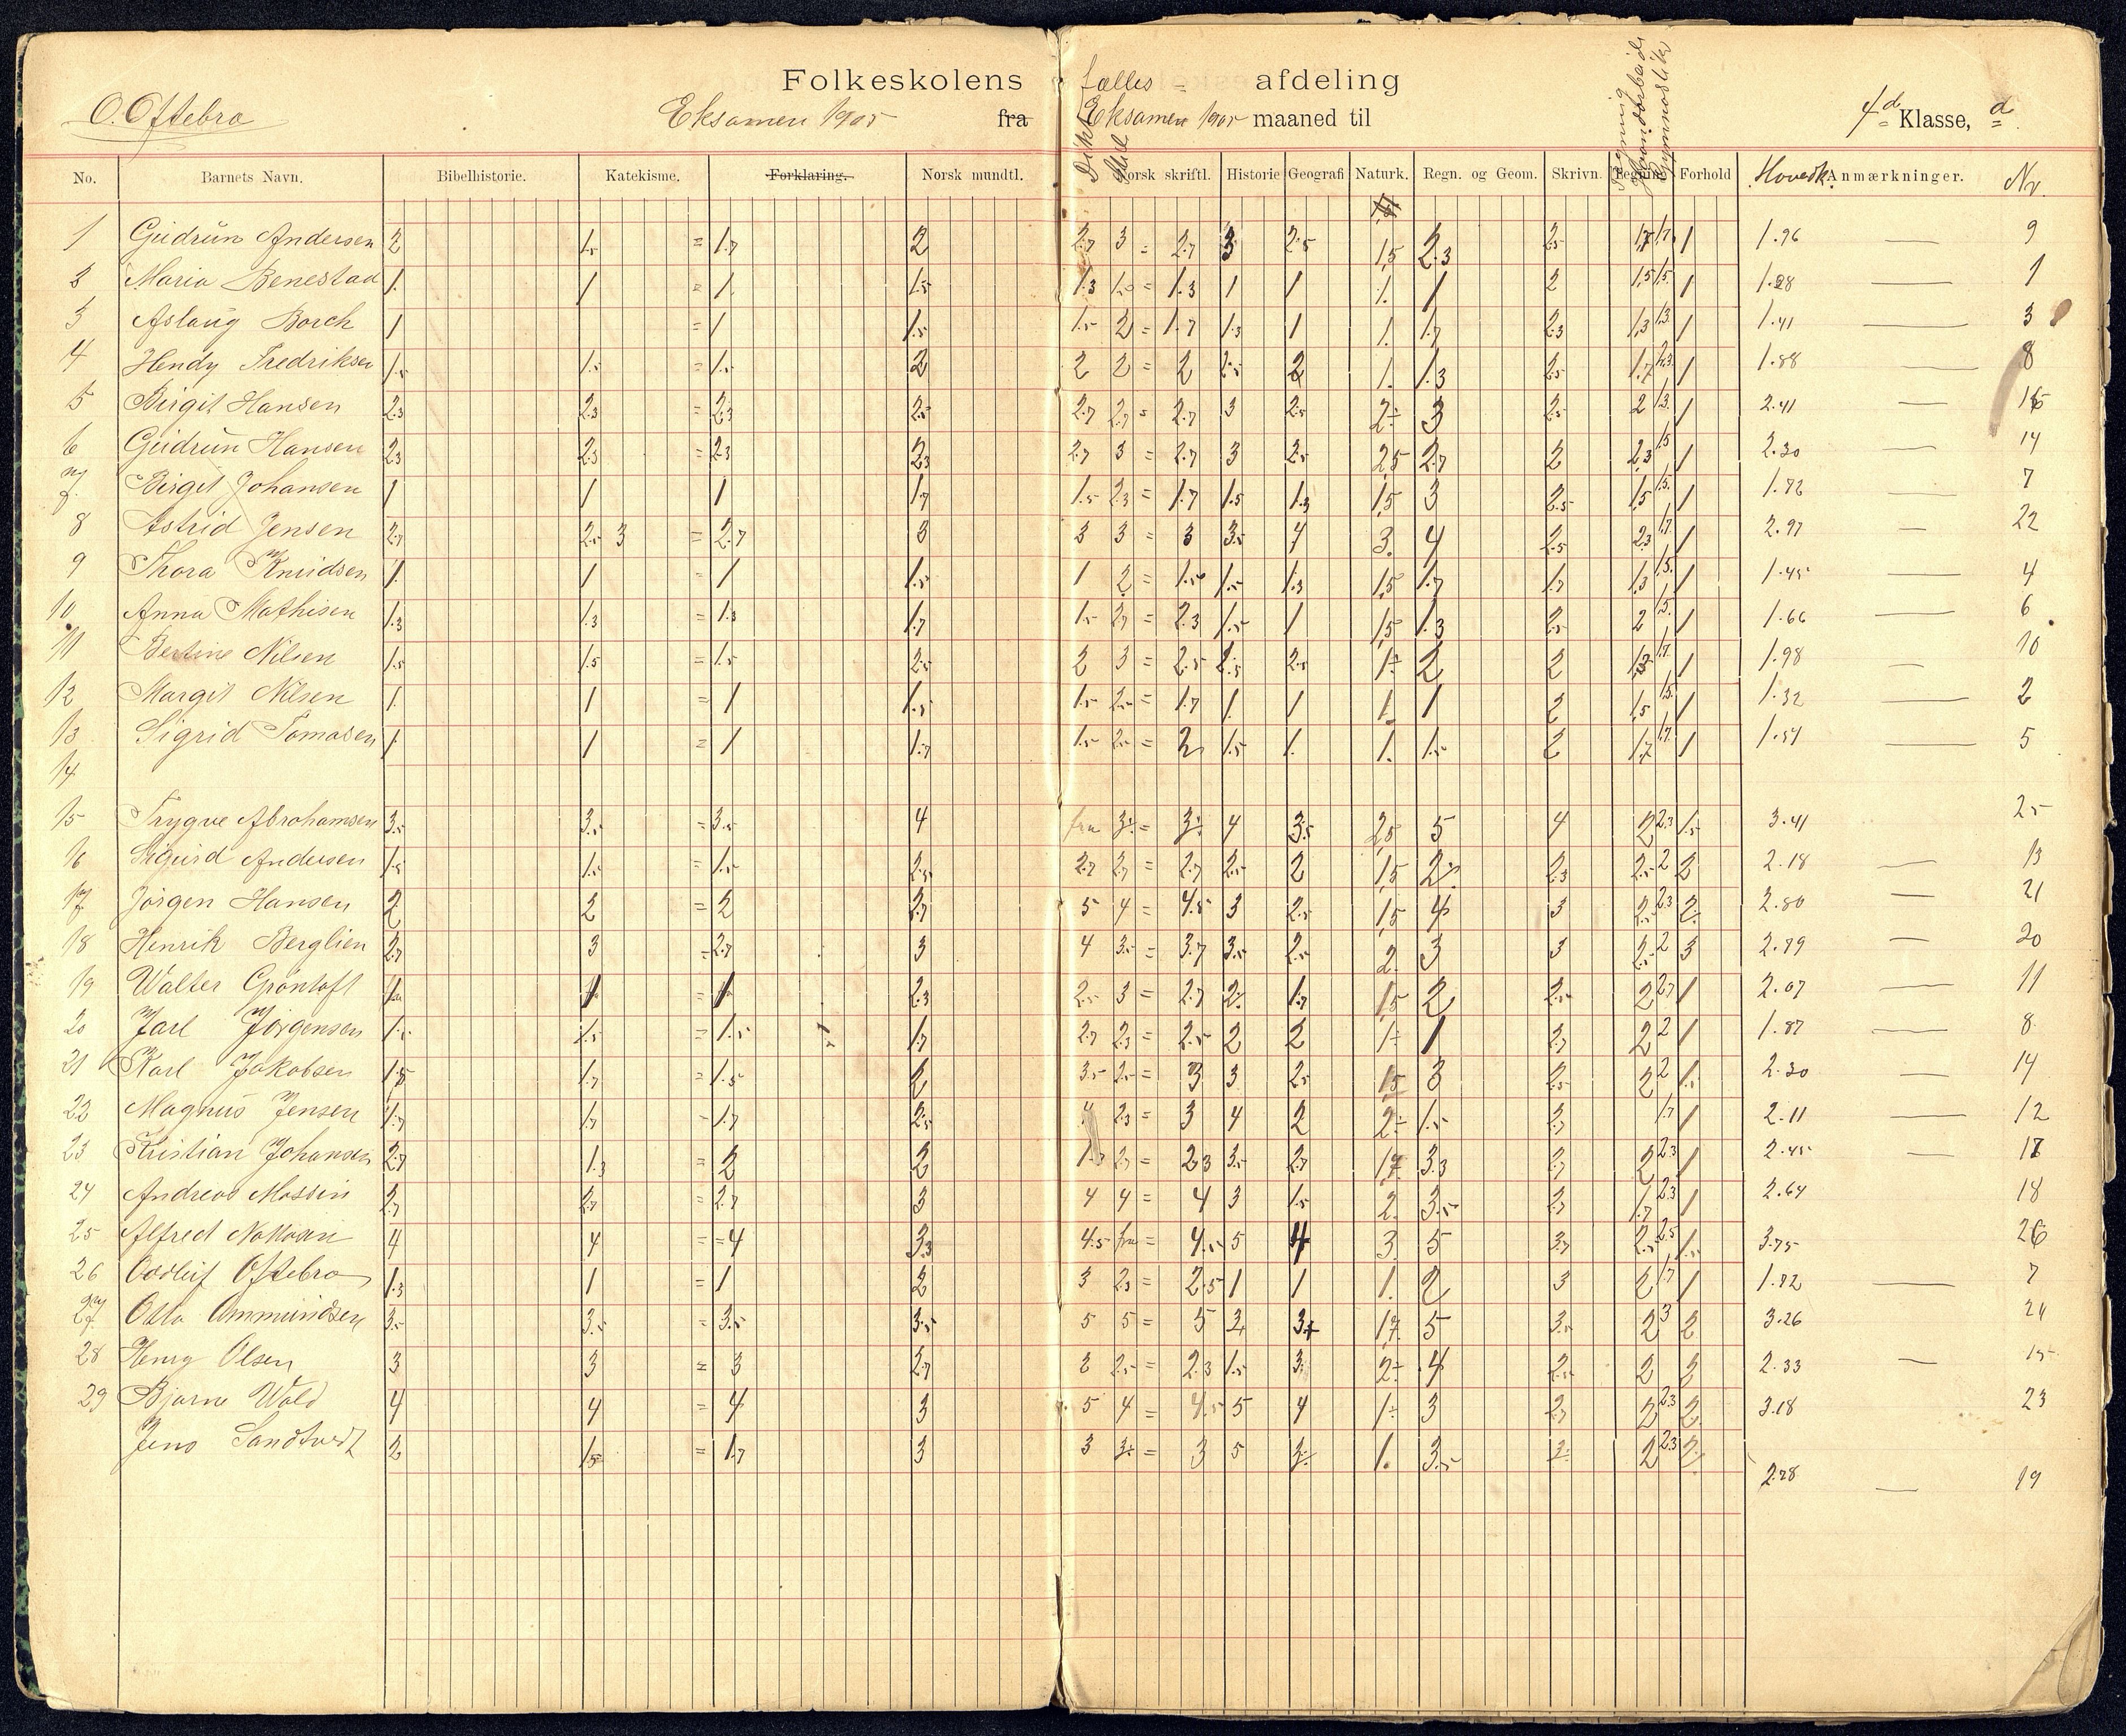 Folkeskolens fælles = afdeling
O. Oftebro Eksamen 1905 fra Eksamen 1905 maaned til 4d Klasse, d
No. Barnets Navn. Bibelhistorie. Katekisme. Forklaring. Norsk mundtl. Dikt. Stil Norsk skriftl. Historie Geografi Naturk. Regn. og Geom. Skrivn. Tegning Haandarbeide Gymnastikk Forhold Hovedk. Anmærkninger. Nr.
1 Gudrun Andersen 2 1.5 = 1.7 2 2.7 3 = 2.7 3 2.5 1,5 2.3 2.5 1.7 1.7 1 1.96 — 9
2 Maria Benestad 1. 1 = 1. 1.5 1.3 1.5 = 1.3 1 1 1. 1 2 1,5 1,5. 1 1.28 — 1
3 Aslaug Borch 1 = 1 1.5 1.5 2 = 1.7 1.3 1 1. 1.7 2.3 1,3 1.3. 1 1.41 — 3
4 Hendy Fredriksen 1.5 1.5 = 1.5 2 2 2 = 2 2.5 2 1. 1.3 2.5 1.7 2.3. 1 1.88 — 8
5 Birgit Hansen 2.3 2.3 = 2.3 2.5 2.7 2.7 = 2.7 3 2.5 2÷ 3 2.5 2 1.3. 1 2.41 — 16
6 Gudrun Hansen 2.3 2.3 = 2.3 2.3 2.7 3 = 2.7 3 2.5 2,5 2.7 2 2,3 1.5 1 2.30 — 14
7 Birgit Johansen 1 1 1 1.7 1.5 2.3 = 1.7 1.5 1.3 1,5 3 2.5 1,5 1.5. 1 1.72 — 7
8 Astrid Jensen 2.7 2.5 3 = 2.7 3 3 3 = 3 3.5 4 3. 4 2.5 2.3 1.7 1 2.97 — 22
9 Thora Knudsen 1. 1 = 1 1.5 1 2 = 1.5 1.5 1.3 1,5 1.7 1.7 1.3 1.5. 1 1.45 — 4
10 Anna Mathisen 1.3 1.3 = 1.3 1.7 1.5 2.7 = 2.3 1.5 1 1,5 1.3 2.5 2 1.5. 1 1.66 — 6
11 Bertine Nilsen 1.5 1.5 = 1.5 2.5 2 3 = 2.5 2.5 2.5 1÷ 2 2 1.3 1.7. 1 1.98 — 10
12 Margit Nilsen 1. 1 = 1 1.5 1.5 2.5 = 1.7 1. 1 1. 1 2 1,5 1.5. 1 1.32 — 2
13 Sigrid Tomasen 1. 1 = 1 1.7 1.5 2.5 = 2 1.5 1. 1. 1.5 2 1.7 1.7. 1 1.54 — 5
14
15 Trygve Abrahamsen 3.5 3.5 = 3.5 4 fra 3÷ = 3÷ 4 3.5 2,5 5 4 2 2.3 1.5 3.41 25
16 Sigurd Andersen 1.5 1.5 = 1.5 2.5 2.7 2.7 = 2.7 2.5 2 1,5 2÷ 2.3 2.5 2 2 2.18 — 13
17 Jörgen Hansen 2 2 = 2 2.7 5 4 = 4.5 3 2.5 1,5 4 3 2.5 2.3 2. 2.80 — 21
18 Henrik Berglien 2.7 3 = 2.7 3 4 3.5 = 3.7 3.5 2.5 2. 3 3 2.5 2 3 2.79 — 20
19 Walter Gröntoft 1 1 = 1 2.3 2.5 3 = 2.7 2÷ 1.7 1,5 2 2.5 2 2.7 1 2.07 — 11
20 Jarl Jörgensen 1.5 1.5 = 1.5 1.7 2.7 2.3 = 2.5 2 2 1÷ 1 2.7 2 2 1 1.87 — 8
21 Karl Jakobsen 1.5 1.7 = 1.5 2 3.5 2.5 = 3 3 2.5 1,5 3 2.5 2 2 1.5 2.30 — 14
22 Magnus Jensen 1.7 1.7 = 1.7 2.5 4 2.3 = 3 4 2 2÷ 1.5 2.7 1.7 1 2.11 — 12
23 Kristian Johansen 2.7 1.3 = 2 2 2.7 = 2.3 3.5 2.7 1.7 3.3 2.7 2 2.3 1 2.45 — 17
24 Andreas Mossin 2.7 2.7 = 2.7 3 4 4 = 4 3 1.5 2. 3.5 2.7 1.7 2.3 1 2.64 — 18
25 Alfred 4 4 = 4 3.3 4.5 fra = 4.5 5 4 3. 5 3.7 2.5 2.5 1.5 3.75 26
26 Oddleif Oftebro 1.3 1 = 1 2 3 2.3 = 2.5 1 1 1. 2 3 2 1.7 1 1.72 — 7
27 Otto Ommundsen 3.5 3.5 = 3.5 3.5 5 5 = 5 3÷ 3+ 1.7. 5 3.5 2 3 2 3.26 24
28 Henry Olsen 3 3 = 3 2.7 2 2.5 = 2.3 1.5 3. 2÷ 4 2.5 2 2 2.33 — 15
29 Bjarne Wold 4 4 = 4 3 5 4 = 4.5 5 4 1÷ 3 2.7 2 2.3 2 3.18 23
Jens Sandtvedt 2 1.5 = 1.7 3 3 3÷ = 3 5 3÷ 1. 3.5 2÷ 2 2.3 2. 2.78 — 19